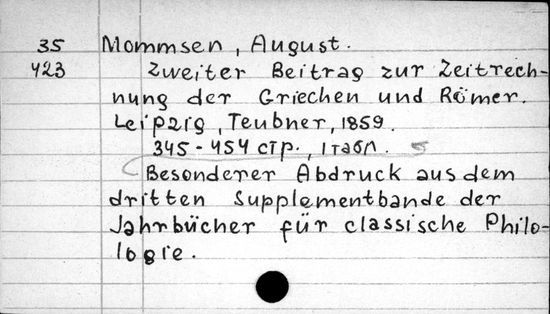 35 Mommsen, August.
423 Zweiter Beitrag zur Zeitrech-
nung der Griechen und Römer.
Leipzig, Teubner, 1859.
345-454 стр., 1 табл.
Besonderer Abdruck aus dem
dritten Supplementbande der
Jahrbücher für classische Philo-
logie.